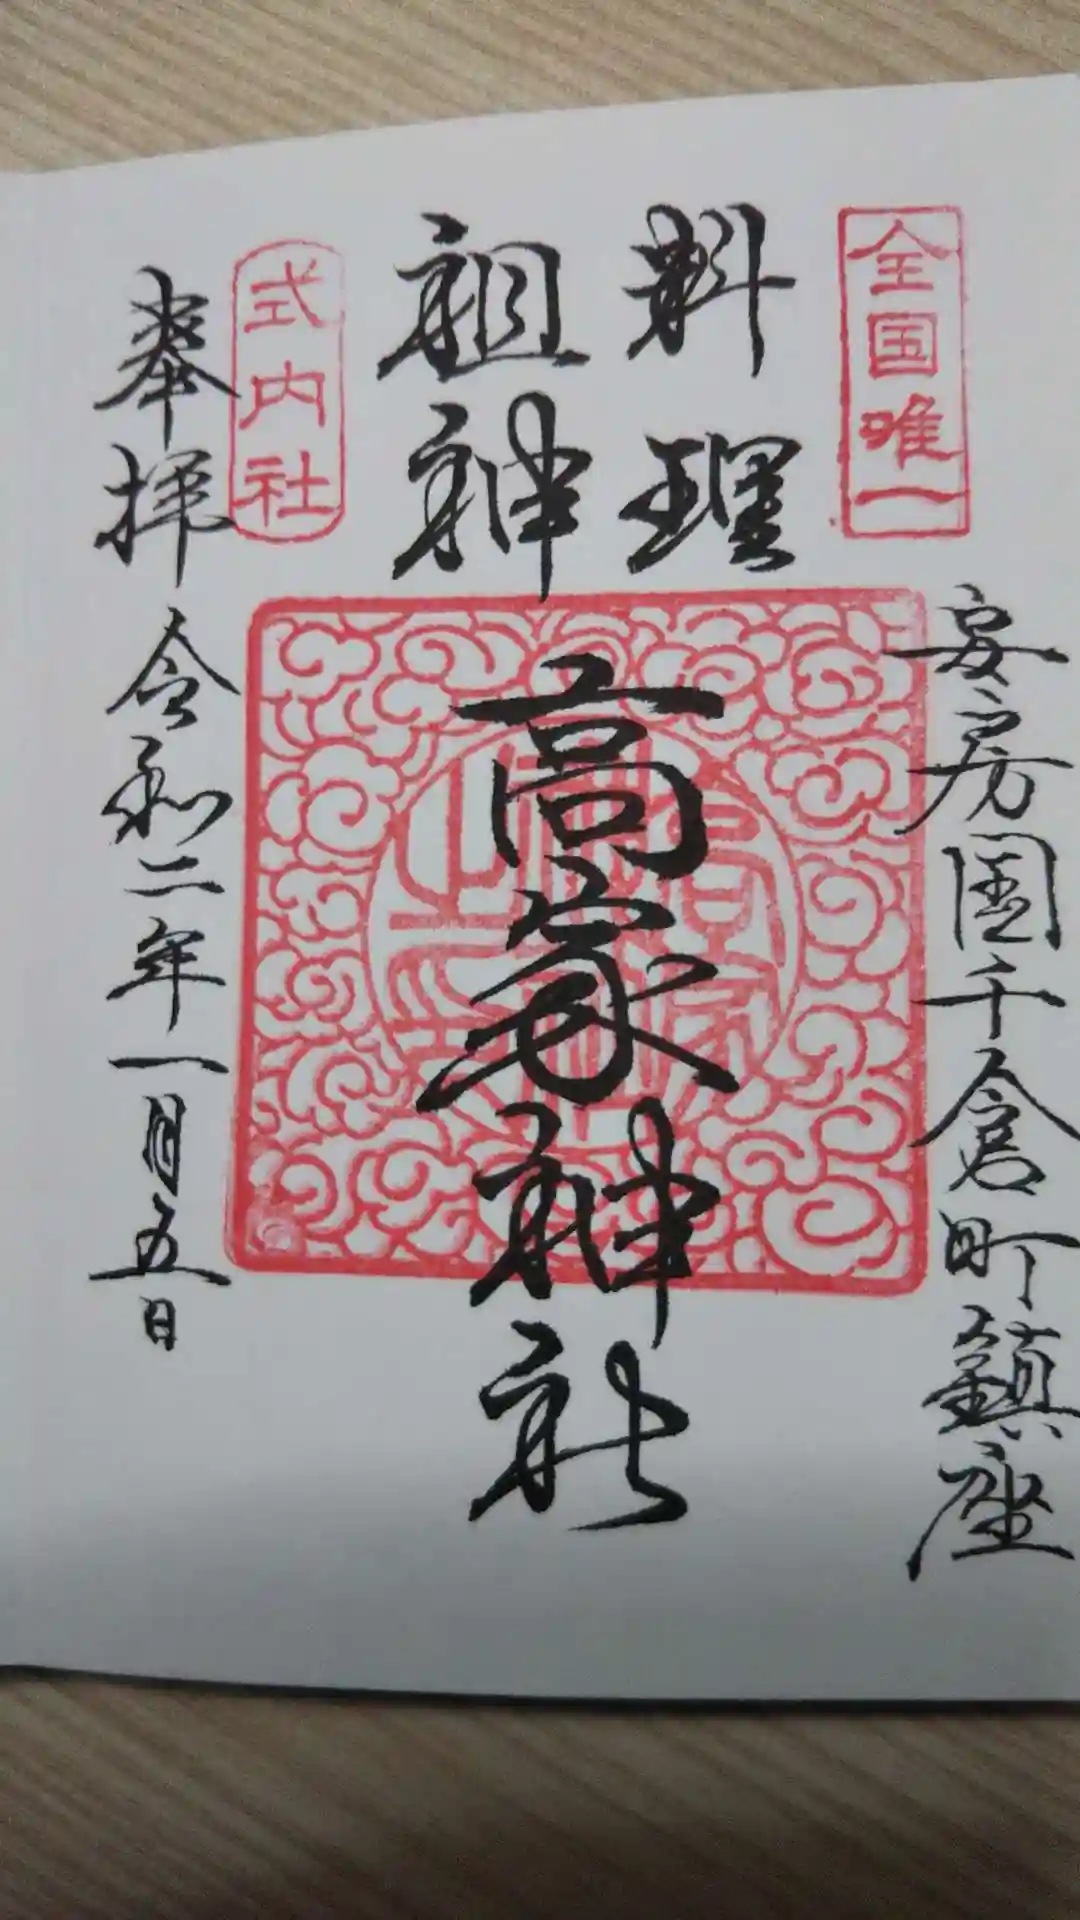 全国唯一
安房国千倉町鎮座
料理
祖神
高家神社
式内社
奉拝
令和二年一月五日